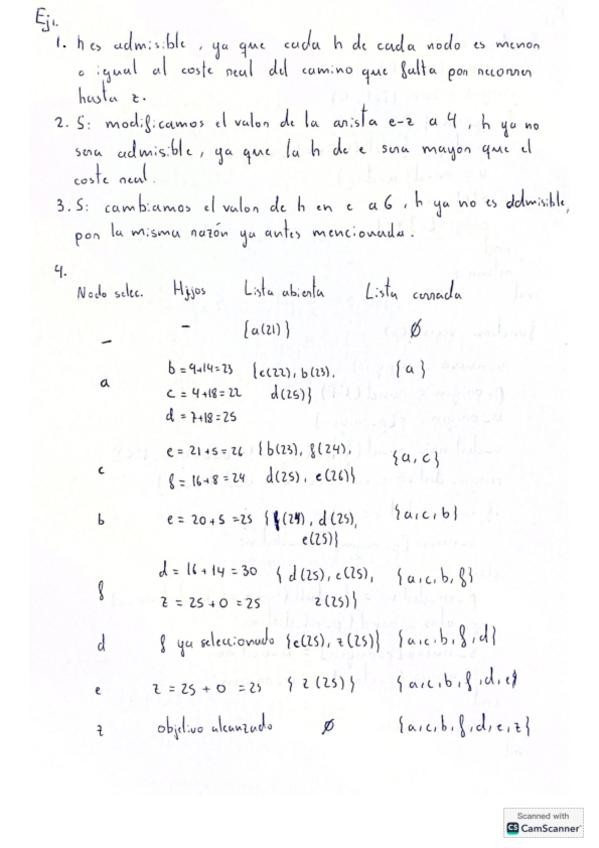 Ej1.
1. h es admisible, ya que cada h de cada nodo es menor
o igual al coste real del camino que falta por recorrer
hasta z.
2. Si modificamos el valor de la arista e-z a 4, h ya no
sera admisible, ya que la h de e sera mayor que el
coste real.
3. Si cambiamos el valor de h en e a 6, h ya no es ddmisible,
por la misma razón ya antes mencionada.
4.
Nodo selec. Hijos Lista abierta Lista cerrada
- - {a(21)} ∅
a b = 9+14=23 {c(22), b(23), {a}
c = 4+18=22 d(25)}
d = 7+18=25
c e = 21+5=26 {b(23), f(24), {a,c}
f = 16+8=24 d(25), e(26)}
b e = 20+5=25 {f(24), d(25), {a,c,b}
e(25)}
f d = 16+14=30 {d(25), e(25), {a,c,b,f}
z = 25+0=25 z(25)}
d f ya seleccionado {e(25), z(25)} {a,c,b,f,d}
e z = 25+0=25 {z(25)} {a,c,b,f,d,e}
z objetivo alcanzado ∅ {a,c,b,f,d,e,z}
Scanned with
CS CamScanner